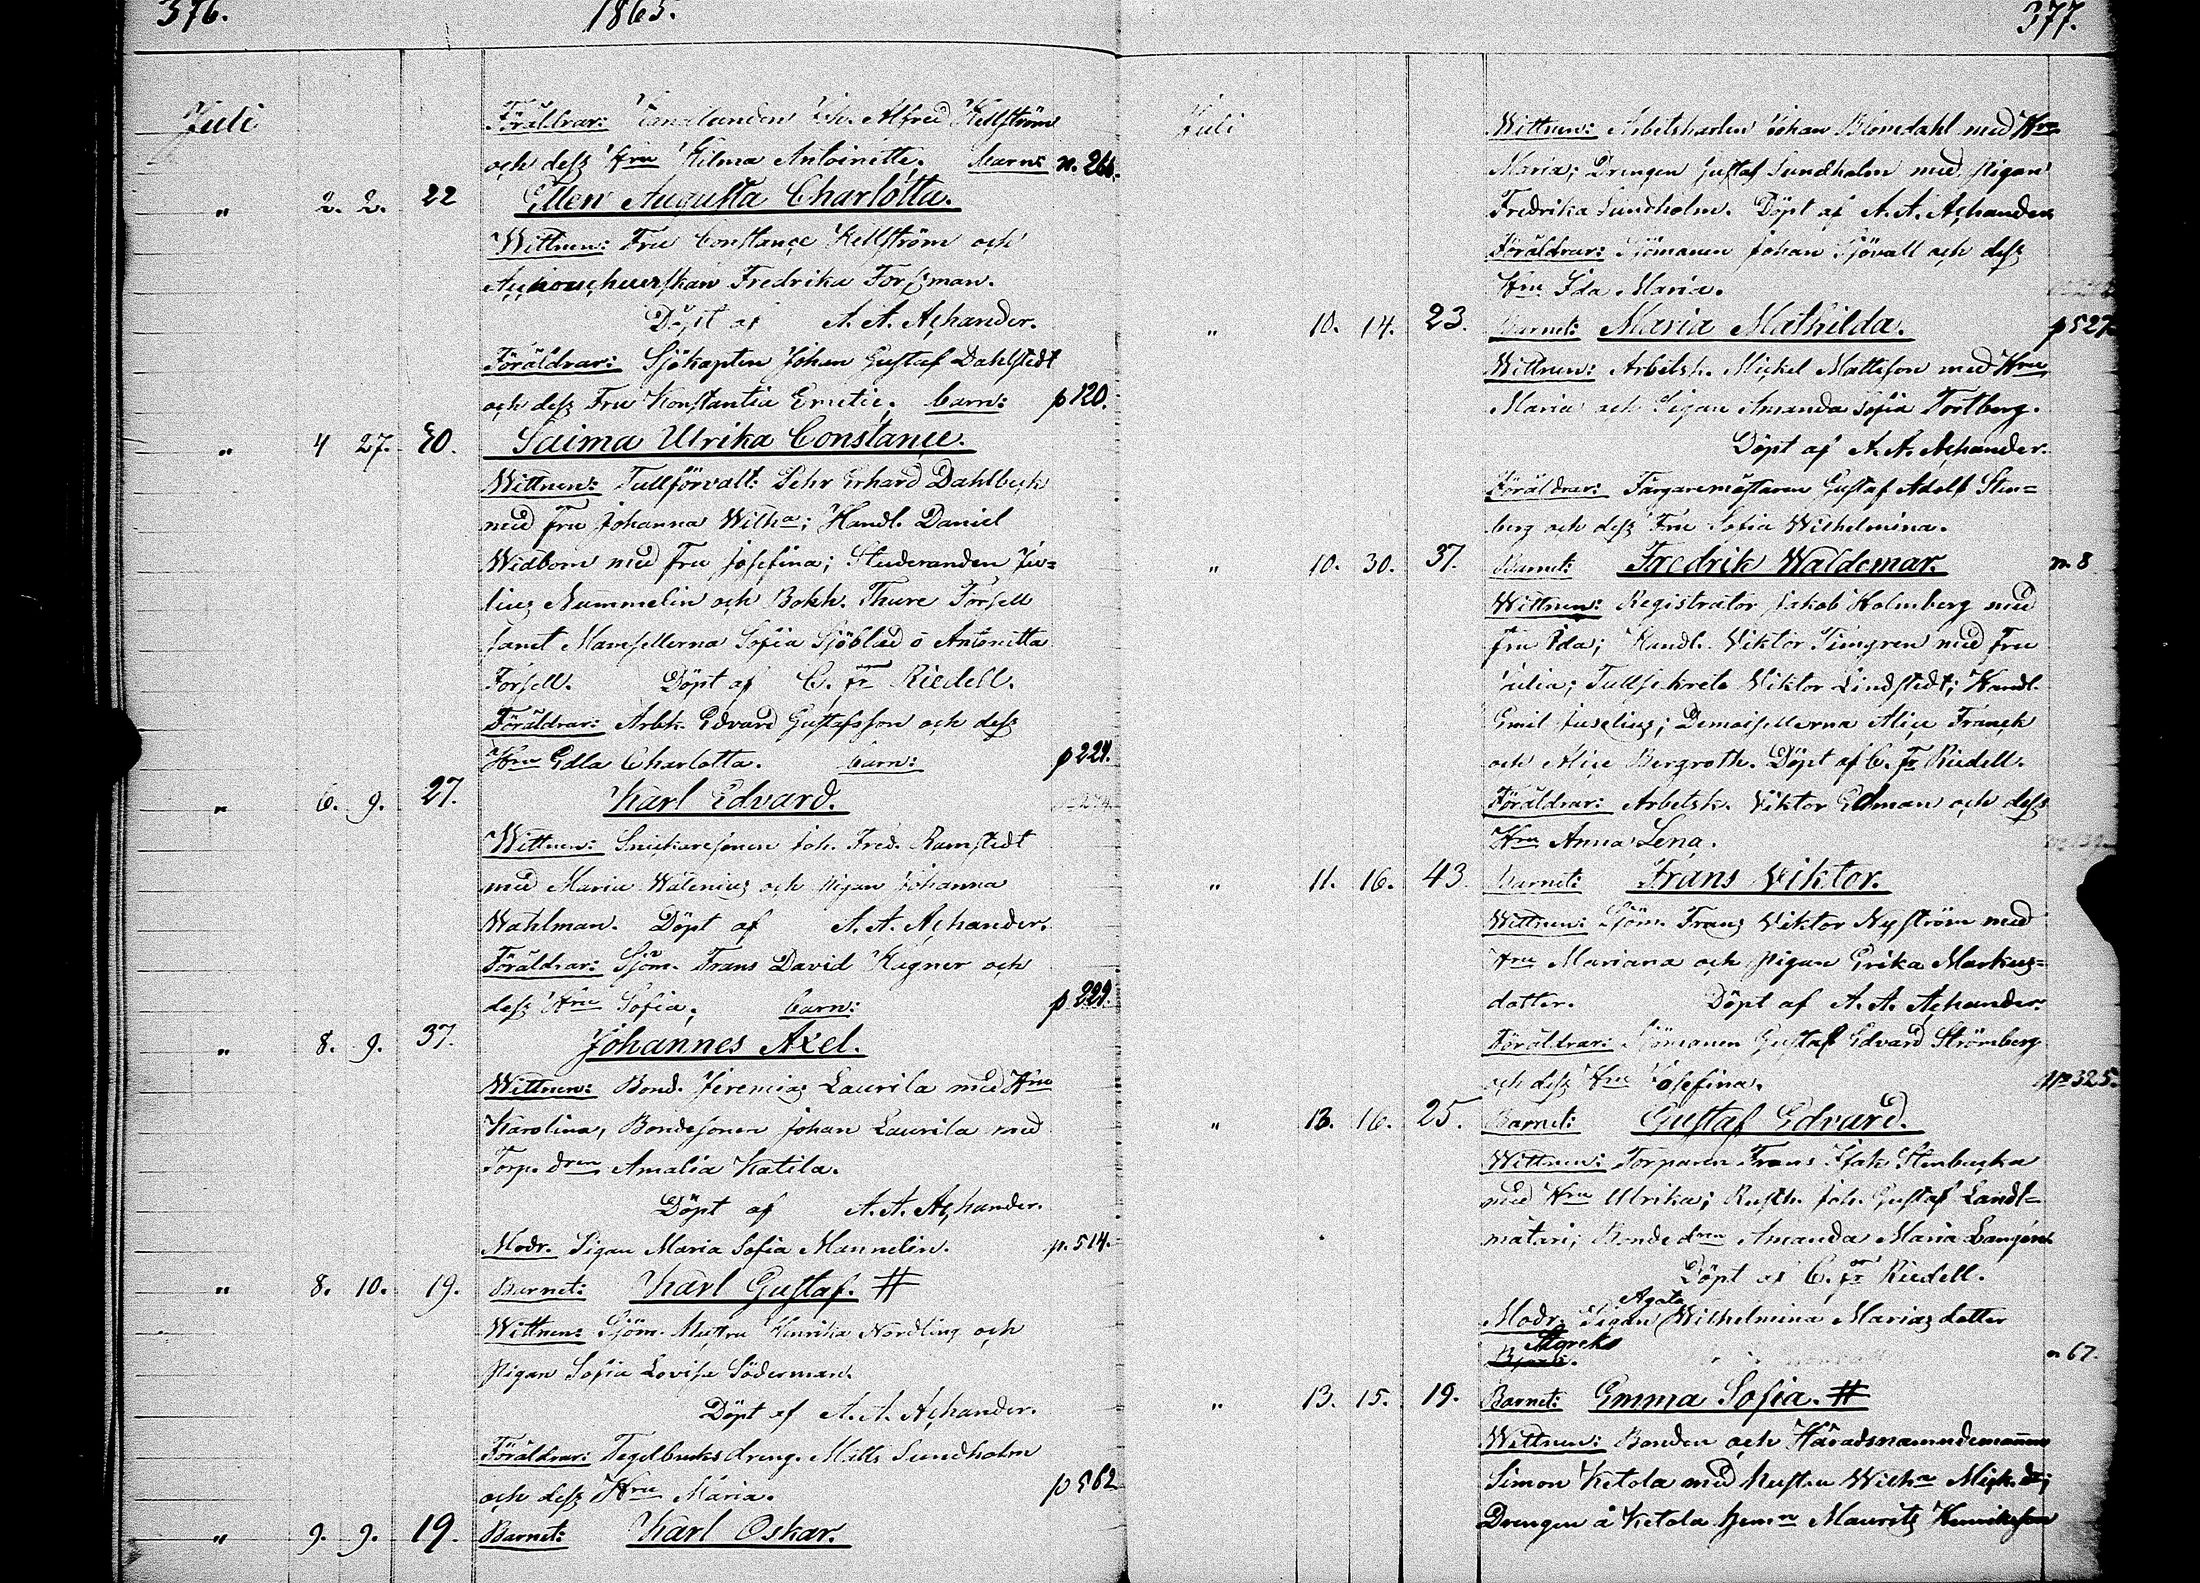 376. 1865.
Juli Föräldrar: Joh. Alfred Hellström
och dess Hru Hilma Antoinette. Barn: n. 266.
" 2. 2. 22 Ellen Augusta Charlotta.
Wittnen: Fru Constance Hellström och
Fredrika Forsman.
Döpt af A. A. Achander.
Föräldrar: Sjökapten Johan Gustaf Dahlstedt
och dess Fru Konstantia Emelie. barn: p 120.
" 4 27. 20. Saima Ulrika Constance.
Wittnen: Tullförvalt: Erhard Dahlbeck
med Fru Johanna Wilh:a; Handl. Daniel
Widbom med Fru Josefina; Studeranden Ju=
lius Nummelin och Bokh. Thure Forsell
samt Mamsellerna Sofia Sjöblad o Antonetta
Forsell. Döpt af C. Fr Riedell.
Föräldrar: Arbk. Edvard Gustafsson och dess
Hru Edla Charlotta. barn: p 224.
" 6. 9. 27. Karl Edvard.
Wittnen: Snickaresonen Joh. Fred. Ramstedt
med Maria Walenius och pigan Johanna
Wahlman. Döpt af A. A. Achander.
Föräldrar: Sjöm. Frans David Hagner och
dess Hru Sofia. barn: p 229.
" 8. 9. 37. Johannes Axel.
Wittnen: Bond. Jeremias Laurila med Hru
Karolina, Bondesonen Johan Laurila med
Torp. dren Amalia Katila.
Döpt af A. A. Achander.
Modr. Pigan Maria Sofia Mannelin. p. 514.
" 8. 10. 19. Barnet: Karl Gustaf. #
Wittnen: Sjöm. Henrika Nordling och
pigan Sofia Lovisa Söderman.
Döpt af A. A. Achander.
Föräldrar: Tegelbruksdreng. Matts Sundholm
och dess Hru Maria. p 562
" 9. 9. 19. Barnet: Karl Oskar.
377.
Juli Wittnen: Arbetskarlen Johan Blomdahl med Hru
Maria; Drengen Gustaf Sundholm med pigan
Fredrika Sundholm. Döpt af A. A. Achander
Föräldrar: Sjömanen Johan Sjövall och dess
Hru Ida Maria.
" 10. 14. 23. Barnet: Maria Mathilda. p 527
Wittnen: Arbetsk. Mickel Mattsson med Hru
Maria och Pigan Amanda Sofia Fortberg.
Döpt af A. A. Achander.
Föräldrar: Färgaremästaren Gustaf Adolf Sten=
berg och dess Fru Sofia Wilhelmina.
" 10. 30. 37. Barnet: Fredrik Waldemar. n. 8
Wittnen: Registrator Jakob Holmberg med
Fru Ida; Handl. Viktor Timgren med Fru
Julia; Viktor Lindstedt; Handl.
Emil Juselius; Demoisellerna Alice Franck
och Alice Bergroth. Döpt af C. Fr Riedell.
Föräldrar: Arbetsk. Viktor Edman och dess
Hru Anna Lena.
" 11. 16. 43. Barnet: Frans Viktor.
Wittnen: Sjöm. Frans Viktor Nyström med
Hru Mariana och pigan Erika Markus=
dotter. Döpt af A. A. Achander.
Föräldrar: Sjömanen Gustaf Edvard Strömberg
och dess Hru Josefina. 325.
" 13. 16. 25. Barnet: Gustaf Edvard.
Wittnen: Torparen Frans Isak Stenbacka
med Hru Ulrika; Rusth. Joh. Gustaf Landt=
mätari; Bonde dren Amanda Maria
Döpt af C. Fr Riedell.
Agata
Modr: Pigan Wilhelmina Marias dotter
n 67.
" 13. 15. 19. Barnet: Emma Sofia. #
Wittnen: Bonden och Häradsnämndemannen
Simon Ketola med Hustru Wilh:a Mick. dr;
Drengen å Ketola hemn Maurits Henriksson